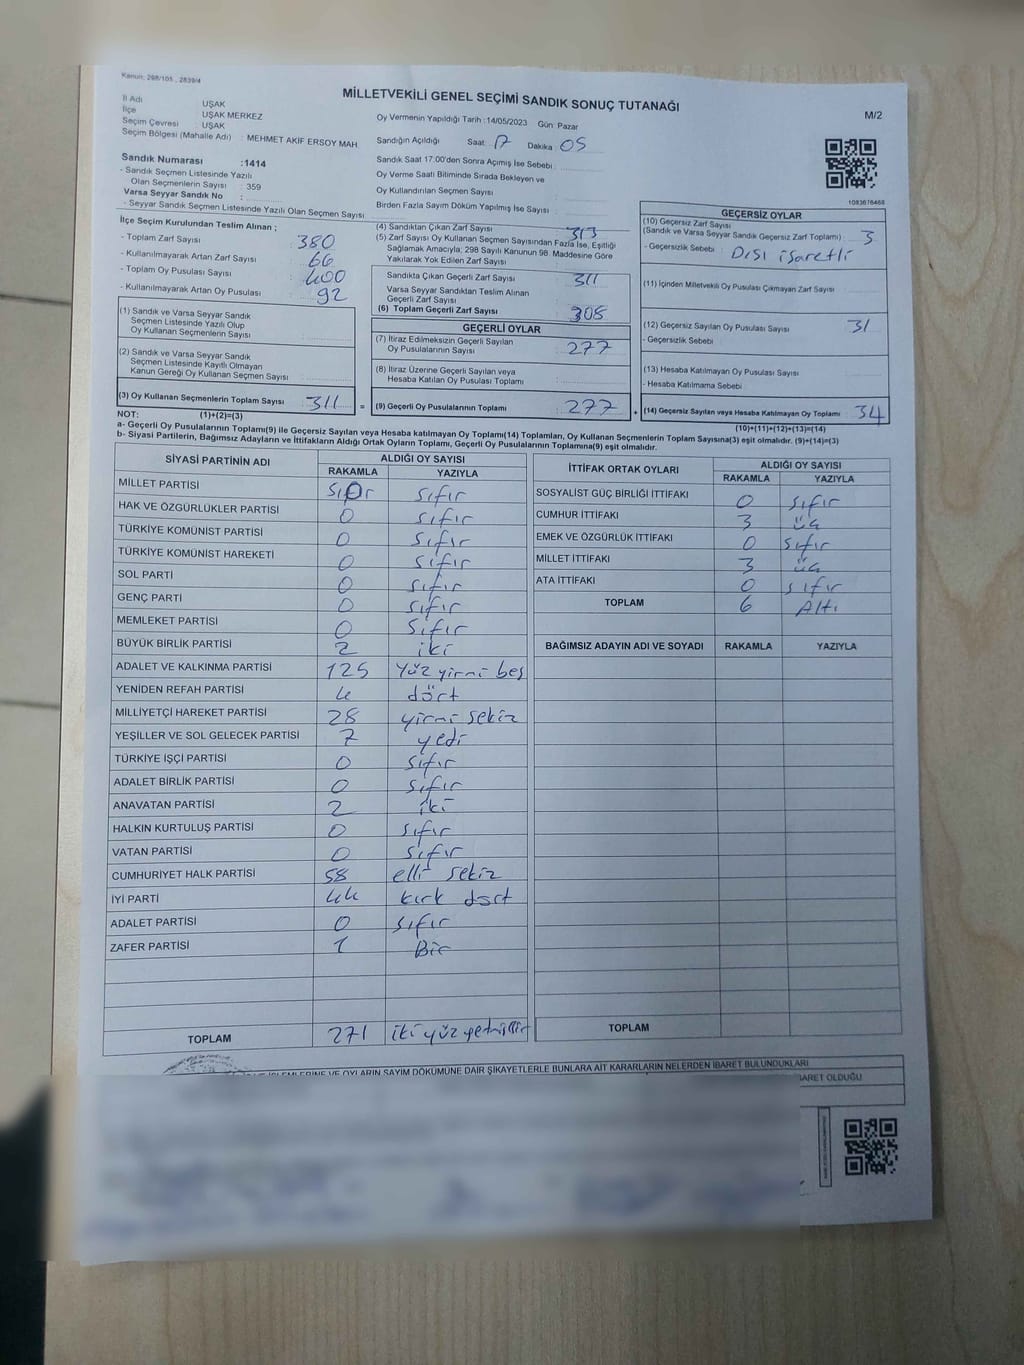 Kanun: 298/105 , 2839/4
MİLLETVEKİLİ GENEL SEÇİMİ SANDIK SONUÇ TUTANAĞI
M/2
İl Adı UŞAK
İlçe UŞAK MERKEZ
Seçim Çevresi UŞAK
Seçim Bölgesi (Mahalle Adı) : MEHMET AKİF ERSOY MAH.
Oy Vermenin Yapıldığı Tarih :14/05/2023 Gün: Pazar
Sandığın Açıldığı Saat: 17 Dakika: 05
Sandık Numarası :1414
- Sandık Seçmen Listesinde Yazılı
Olan Seçmenlerin Sayısı : 359
Varsa Seyyar Sandık No :
- Seyyar Sandık Seçmen Listesinde Yazılı Olan Seçmen Sayısı
Sandık Saat 17:00'den Sonra Açımış İse Sebebi:
Oy Verme Saati Bitiminde Sırada Bekleyen ve
Oy Kullandırılan Seçmen Sayısı
Birden Fazla Sayım Döküm Yapılmış İse Sayısı
1083676468
İlçe Seçim Kurulundan Teslim Alınan ;
- Toplam Zarf Sayısı : 380
- Kullanılmayarak Artan Zarf Sayısı : 66
- Toplam Oy Pusulası Sayısı : 400
- Kullanılmayarak Artan Oy Pusulası : 92
(1) Sandık ve Varsa Seyyar Sandık
Seçmen Listesinde Yazılı Olup
Oy Kullanan Seçmenlerin Sayısı
(2) Sandık ve Varsa Seyyar Sandık
Seçmen Listesinde Kayıtlı Olmayan
Kanun Gereği Oy Kullanan Seçmen Sayısı
(3) Oy Kullanan Seçmenlerin Toplam Sayısı 311 =
(1)+(2)=(3)
(4) Sandıktan Çıkan Zarf Sayısı 313
(5) Zarf Sayısı Oy Kullanan Seçmen Sayısından Fazla İse, Eşitliği
Sağlamak Amacıyla; 298 Sayılı Kanunun 98. Maddesine Göre
Yakılarak Yok Edilen Zarf Sayısı
Sandıkta Çıkan Geçerli Zarf Sayısı 311
Varsa Seyyar Sandıktan Teslim Alınan
Geçerli Zarf Sayısı
(6) Toplam Geçerli Zarf Sayısı 308
GEÇERLİ OYLAR
(7) İtiraz Edilmeksizin Geçerli Sayılan
Oy Pusulalarının Sayısı 277
(8) İtiraz Üzerine Geçerli Sayılan veya
Hesaba Katılan Oy Pusulası Toplamı
(9) Geçerli Oy Pusulalarının Toplamı 277 +
GEÇERSİZ OYLAR
(10) Geçersiz Zarf Sayısı
(Sandık ve Varsa Seyyar Sandık Geçersiz Zarf Toplamı) : 3
- Geçersizlik Sebebi : Dışı işaretli
(11) İçinden Milletvekili Oy Pusulası Çıkmayan Zarf Sayısı
(12) Geçersiz Sayılan Oy Pusulası Sayısı 31
- Geçersizlik Sebebi
(13) Hesaba Katılmayan Oy Pusulası Sayısı
- Hesaba Katılmama Sebebi
(14) Geçersiz Sayılan veya Hesaba Katılmayan Oy Toplamı 34
(10)+(11)+(12)+(13)=(14)
NOT:
a- Geçerli Oy Pusulaları Toplamı(9) ile Geçersiz Sayılan veya Hesaba katılmayan Oy Toplamı(14) Toplamları, Oy Kullanan Seçmenlerin Toplam Sayısına(3) eşit olmalıdır. (9)+(14)=(3)
b- Siyasi Partilerin, Bağımsız Adayların ve İttifakların Aldığı Ortak Oyların Toplamı, Geçerli Oy Pusulalarının Toplamına(9) eşit olmalıdır.
SİYASİ PARTİNİN ADI ALDIĞI OY SAYISI
RAKAMLA YAZIYLA
MİLLET PARTİSİ sıfır sıfır
HAK VE ÖZGÜRLÜKLER PARTİSİ 0 sıfır
TÜRKİYE KOMÜNİST PARTİSİ 0 sıfır
TÜRKİYE KOMÜNİST HAREKETİ 0 sıfır
SOL PARTİ 0 sıfır
GENÇ PARTİ 0 sıfır
MEMLEKET PARTİSİ 0 sıfır
BÜYÜK BİRLİK PARTİSİ 2 iki
ADALET VE KALKINMA PARTİSİ 125 Yüz yirmi beş
YENİDEN REFAH PARTİSİ 4 dört
MİLLİYETÇİ HAREKET PARTİSİ 28 yirmi sekiz
YEŞİLLER VE SOL GELECEK PARTİSİ 7 yedi
TÜRKİYE İŞÇİ PARTİSİ 0 sıfır
ADALET BİRLİK PARTİSİ 0 sıfır
ANAVATAN PARTİSİ 2 iki
HALKIN KURTULUŞ PARTİSİ 0 sıfır
VATAN PARTİSİ 0 sıfır
CUMHURİYET HALK PARTİSİ 58 elli sekiz
İYİ PARTİ 44 kırk dört
ADALET PARTİSİ 0 sıfır
ZAFER PARTİSİ 1 Bir
TOPLAM 271 iki yüz yetmiş bir
İTTİFAK ORTAK OYLARI ALDIĞI OY SAYISI
RAKAMLA YAZIYLA
SOSYALİST GÜÇ BİRLİĞİ İTTİFAKI 0 sıfır
CUMHUR İTTİFAKI 3 üç
EMEK VE ÖZGÜRLÜK İTTİFAKI 0 sıfır
MİLLET İTTİFAKI 3 üç
ATA İTTİFAKI 0 sıfır
TOPLAM 6 Altı
BAĞIMSIZ ADAYIN ADI VE SOYADI RAKAMLA YAZIYLA
TOPLAM
İŞLEMLERİNE VE OYLARIN SAYIM DÖKÜMÜNE DAİR ŞİKAYETLERLE BUNLARA AİT KARARLARIN NELERDEN İBARET BULUNDUKLARI
İBARET OLDUĞU